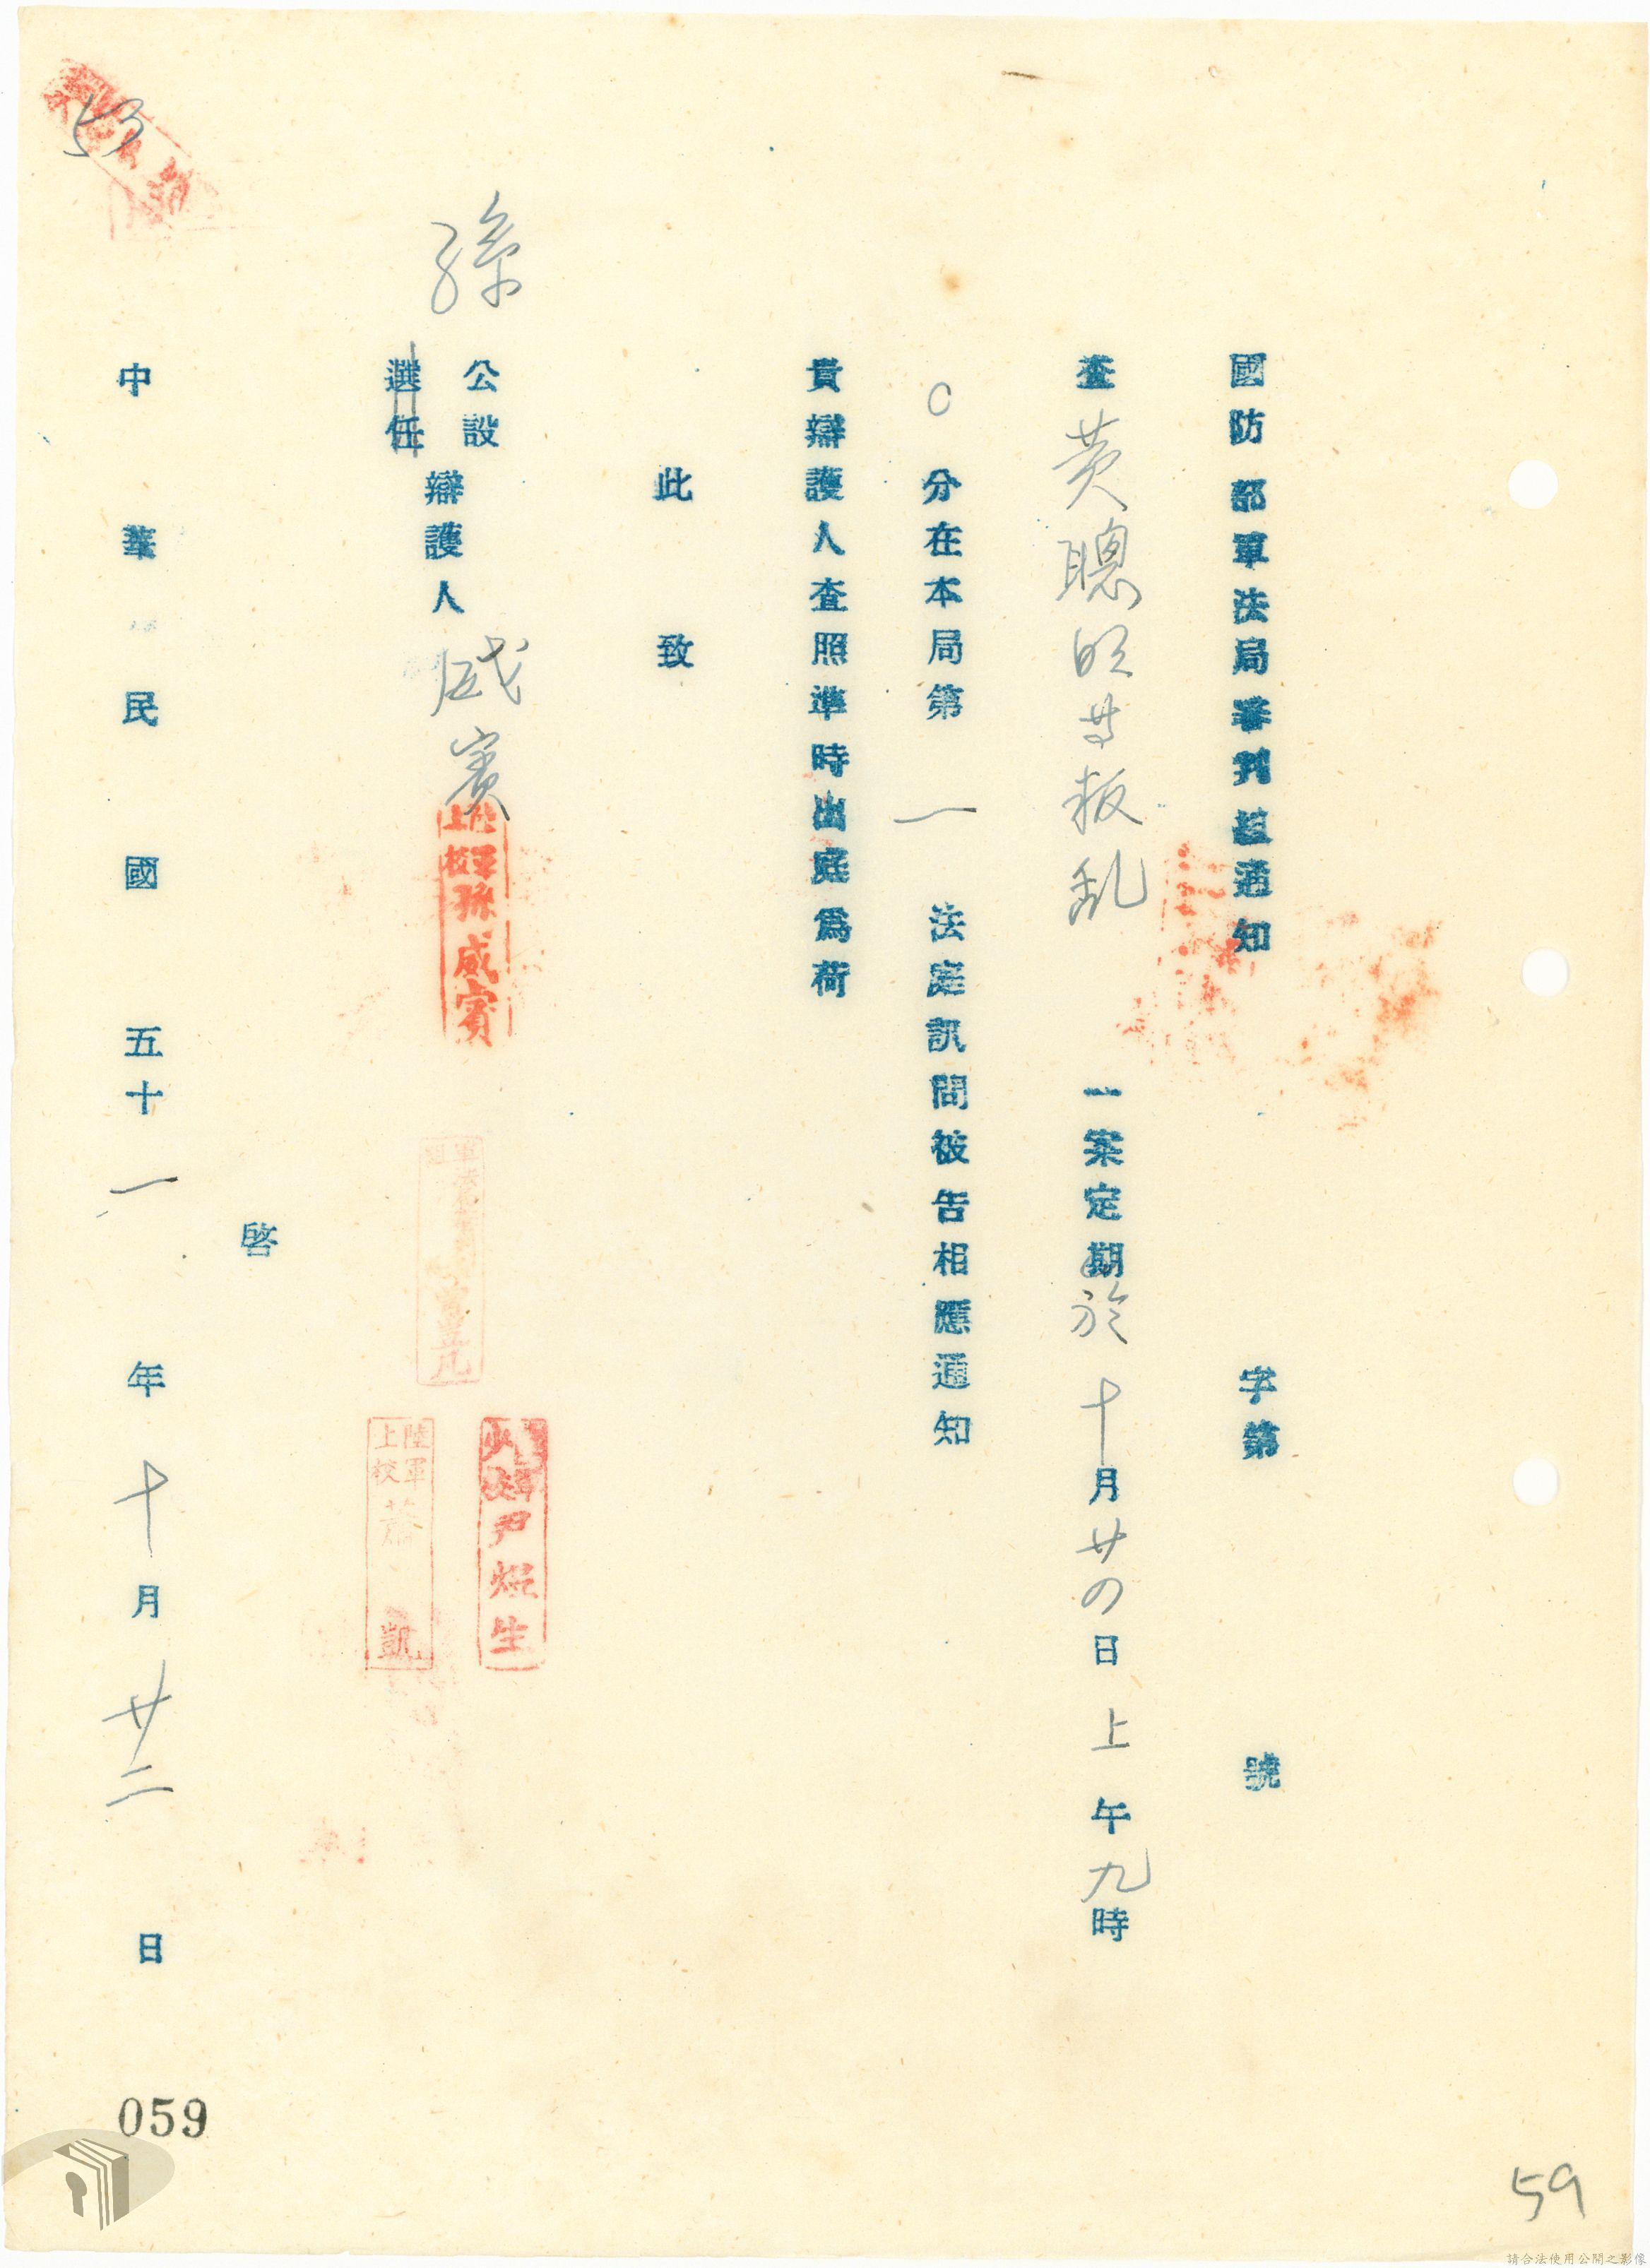 國防部軍法局審判組通知 字第 號
查黃聰明等叛乱 一案定期於十月廿四日上午九時
0分在本局第一法庭訊問被告相應通知
貴辯護人查照準時出庭為荷
此致
孫
公設
選任
辯護人
威賓
陸軍上校孫威賓
尹焜生
陸軍上校蕭凱
啓
中華民國五十一年十月廿二日
53
059
59
請合法使用公開之影像